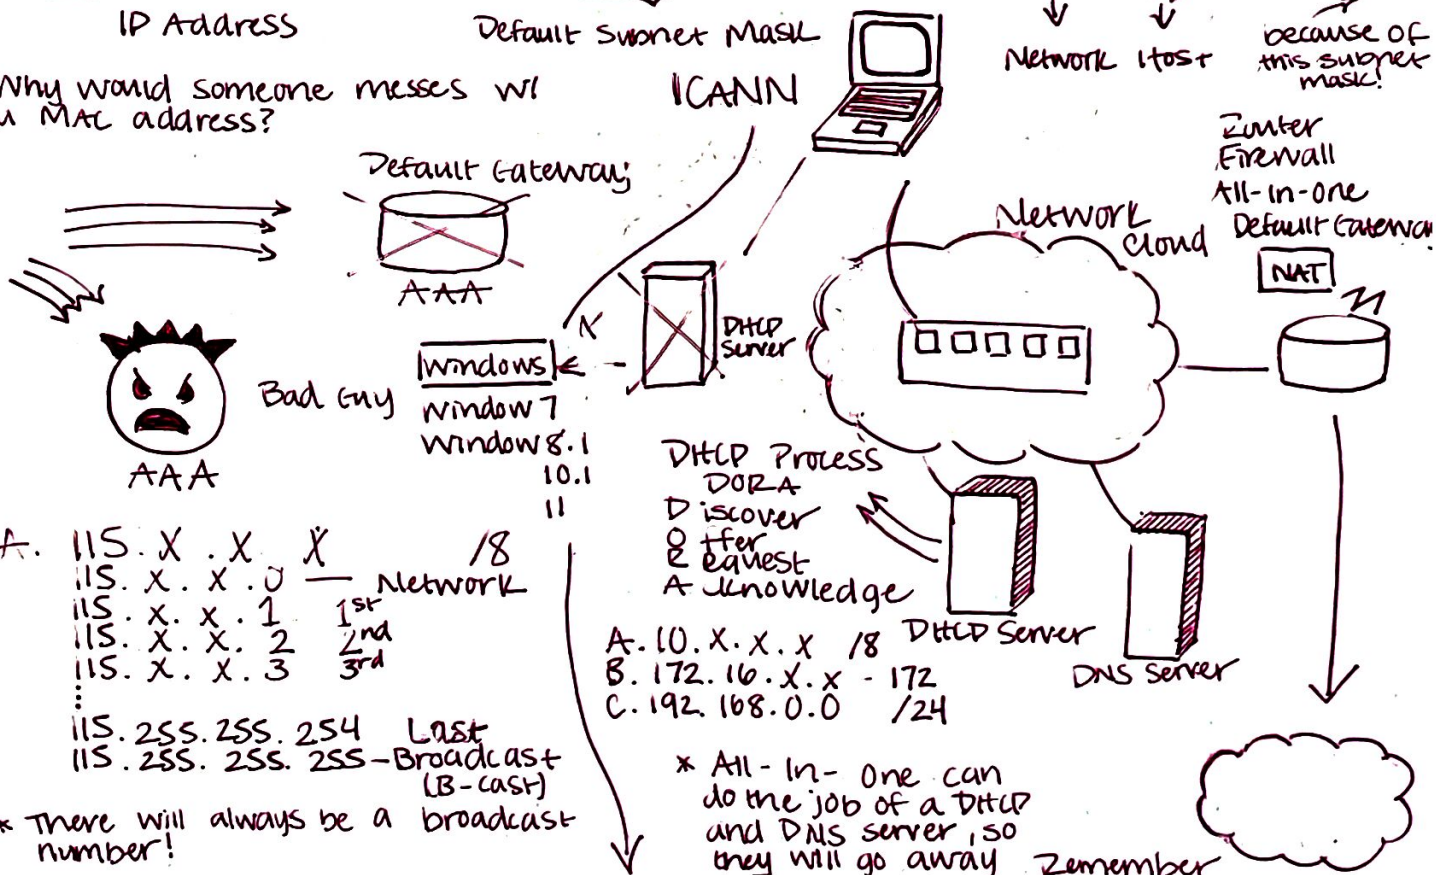 IP Address
Default Subnet Mask
Network Host
because of
this subnet
mask!
Why would someone messes w/
a MAC address?
ICANN
Router
Firewall
All-In-One
Default Gateway
NAT
Default Gateway
AAA
Network
Cloud
DHCP
Server
Bad Guy
AAA
Windows
Window 7
Window 8.1
10.1
11
DHCP Process
DORA
Discover
Offer
Request
Aknowledge
DHCP Server
DNS Server
A. 115.X.X.X /8
115.X.X.0 — Network
115.X.X.1 1st
115.X.X.2 2nd
115.X.X.3 3rd
115.255.255.254 Last
115.255.255.255 - Broadcast
(B-cast)
* There will always be a broadcast
number!
A. 10.X.X.X /8
B. 172.16.X.X - 172
C. 192.168.0.0 /24
* All-In-One can
do the job of a DHCP
and DNS server, so
they will go away
Remember